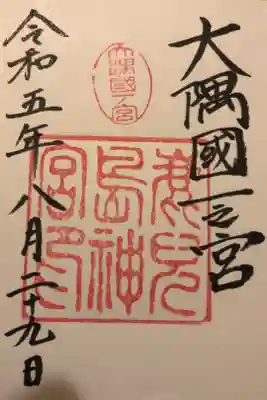 大隅國一之宮
大隅國一ノ宮
鹿兒島神宮印
令和五年八月二十九日